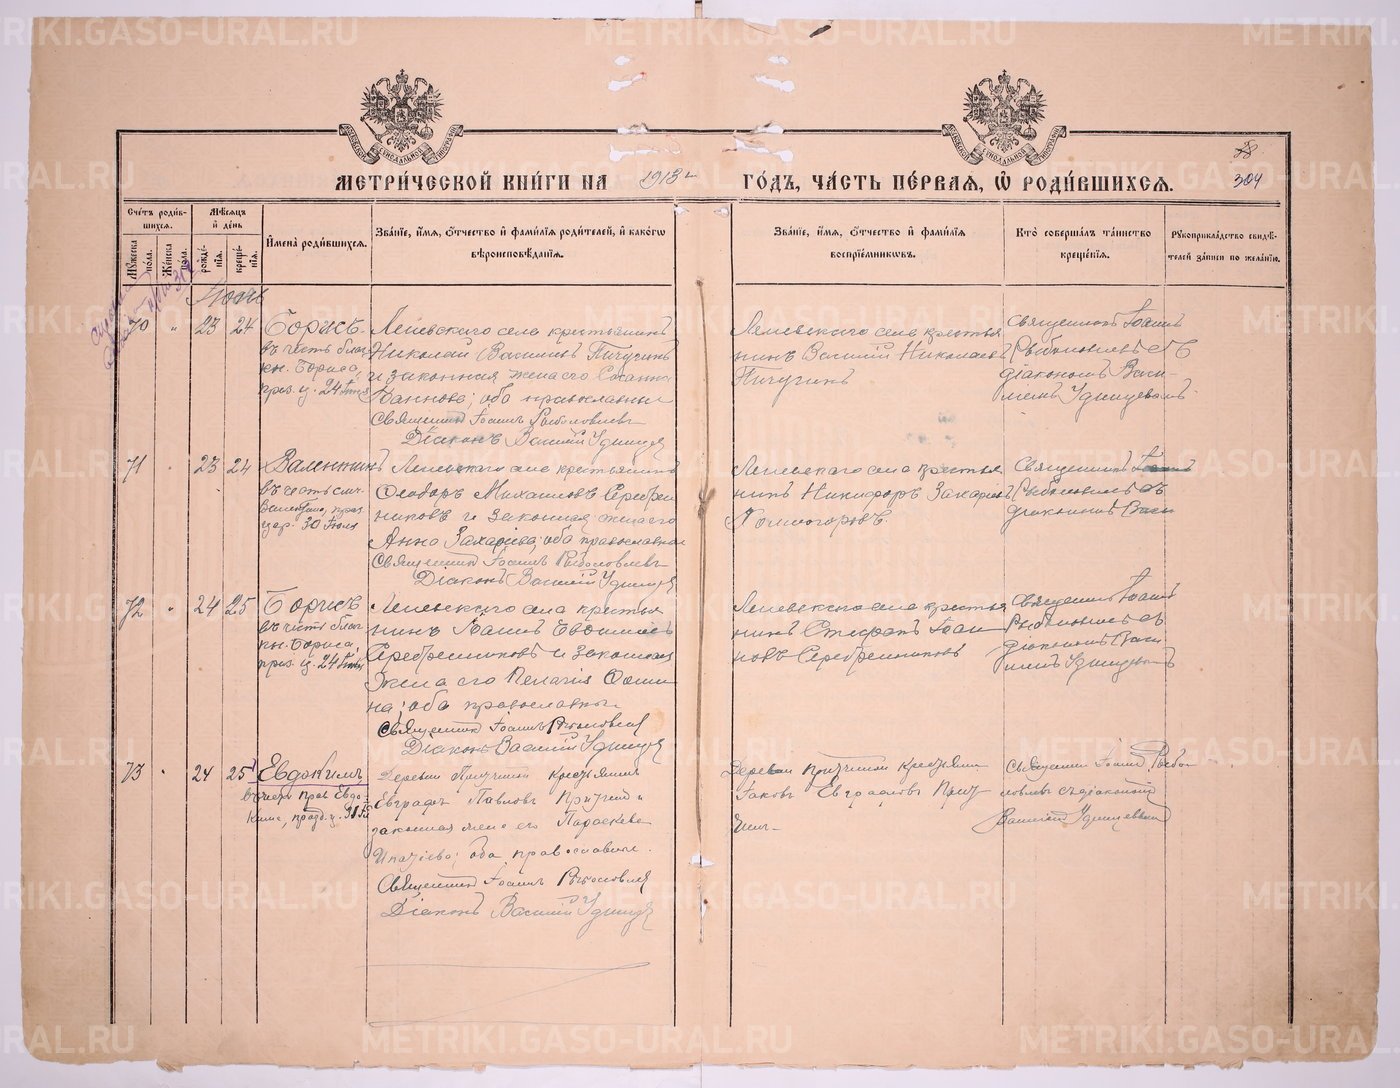 МЕТРИЧЕСКОЙ КНИГИ НА 1913 г. ГОДЪ, ЧАСТЬ ПЕРВАЯ, Ѡ РОДИВШИХСЯ.
38
304
Счетъ родившихся.
Мужеска пола.
Женска пола.
Мѣсяцъ и день
рожденія.
крещенія.
Имена родившихся.
Званіе, имя, отчество и фамилія родителей, и какогѡ
вѣроисповѣданія.
Званіе, имя, отчество и фамилія
воспріемниковъ.
Кто совершалъ таинство
крещенія.
Рукоприкладство свидѣтелей записи по желанію.
Іюль
70 " 23 24
Борисъ
въ честь благ.
кн. Бориса,
праз. ц. 24 Іюля
села крестьянинъ
Николай Васильевъ Пичугинъ
и законная жена его
Іоаннова; оба православные
Священникъ Іоаннъ Рыболовлевъ
Діаконъ Василій Удинцевъ
села крестья
нинъ Василій Николаевъ
Пичугинъ
Священникъ Іоаннъ
Рыболовлевъ съ
діакономъ Васи-
ліемъ Удинцевымъ.
71 " 23 24
Валентинъ
въ честь
праз.
30 Іюля
села крестьянинъ
Ѳеодоръ Михаиловъ Серебрен
никовъ и законная жена его
Анна Захаріева; оба православные
Священникъ Іоаннъ Рыболовлевъ
Діаконъ Василій Удинцевъ
села крестья
нинъ Никифоръ Захаріевъ
Священникъ Іоаннъ
Рыболовлевъ съ
діакономъ Васи
72 " 24 25
Борисъ
въ честь благ.
кн. Бориса,
праз. ц. 24 Іюля
села крестья
нинъ Іоаннъ Евдокимовъ
Серебренниковъ и законная
жена его Пелагія
на; оба православные
Священникъ Іоаннъ Рыболовлевъ
Діаконъ Василій Удинцевъ
села крестья
нинъ Стефанъ Іоан
новъ Серебренниковъ
Священникъ Іоаннъ
Рыболовлевъ съ
діакономъ Васи
ліемъ Удинцевымъ
73 " 24 25
Евдокимъ
въ честь прав. Евдо-
кима, празд. ц. 31 Іюля
Деревни Пичугиной крестьянинъ
Евграфъ Павловъ Пичугинъ и
законная жена его Параскева
Ипатіева; оба православные.
Священникъ Іоаннъ Рыболовлевъ
Діаконъ Василій Удинцевъ
Деревни Пичугиной крестьянинъ
Іаковъ Евграфовъ Пичу
гинъ
Священникъ Іоаннъ Рыбо
ловлевъ съ діакономъ
Василіемъ Удинцевымъ
METRIKI.GASO-URAL.RU